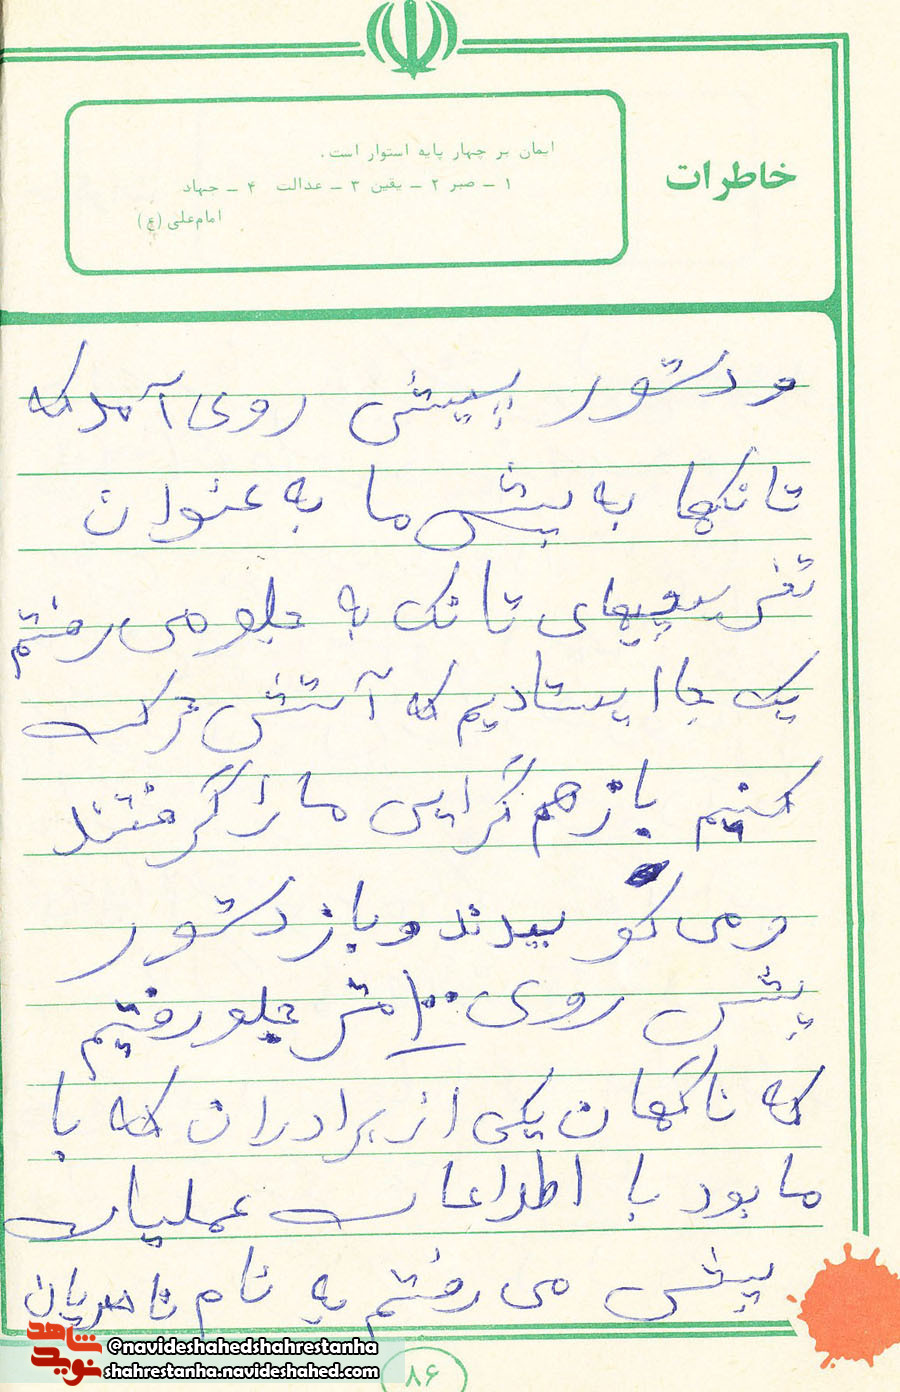 خاطرات
ایمان بر چهار پایه استوار است.
۱ ـ صبر ۲ ـ یقین ۳ ـ عدالت ۴ ـ جهاد
امام‌علی (ع)
و دستور پیش روی آمد که
تانکها به پیش ما به عنوان
تانک به جلو می رفتیم
یک جا ایستادیم که آتش
کنیم باز هم گرای ما را گرفتند
و می کوبیدند و باز دستور
پیش روی ۱۰۰ متر جلو رفتیم
که ناگهان یکی از برادران که با
ما بود با اطلاعات عملیات
پیش می رفتیم به نام
شاهد
نوید
@navideshahedshahrestanha
shahrestanha.navideshahed.com
۸۶